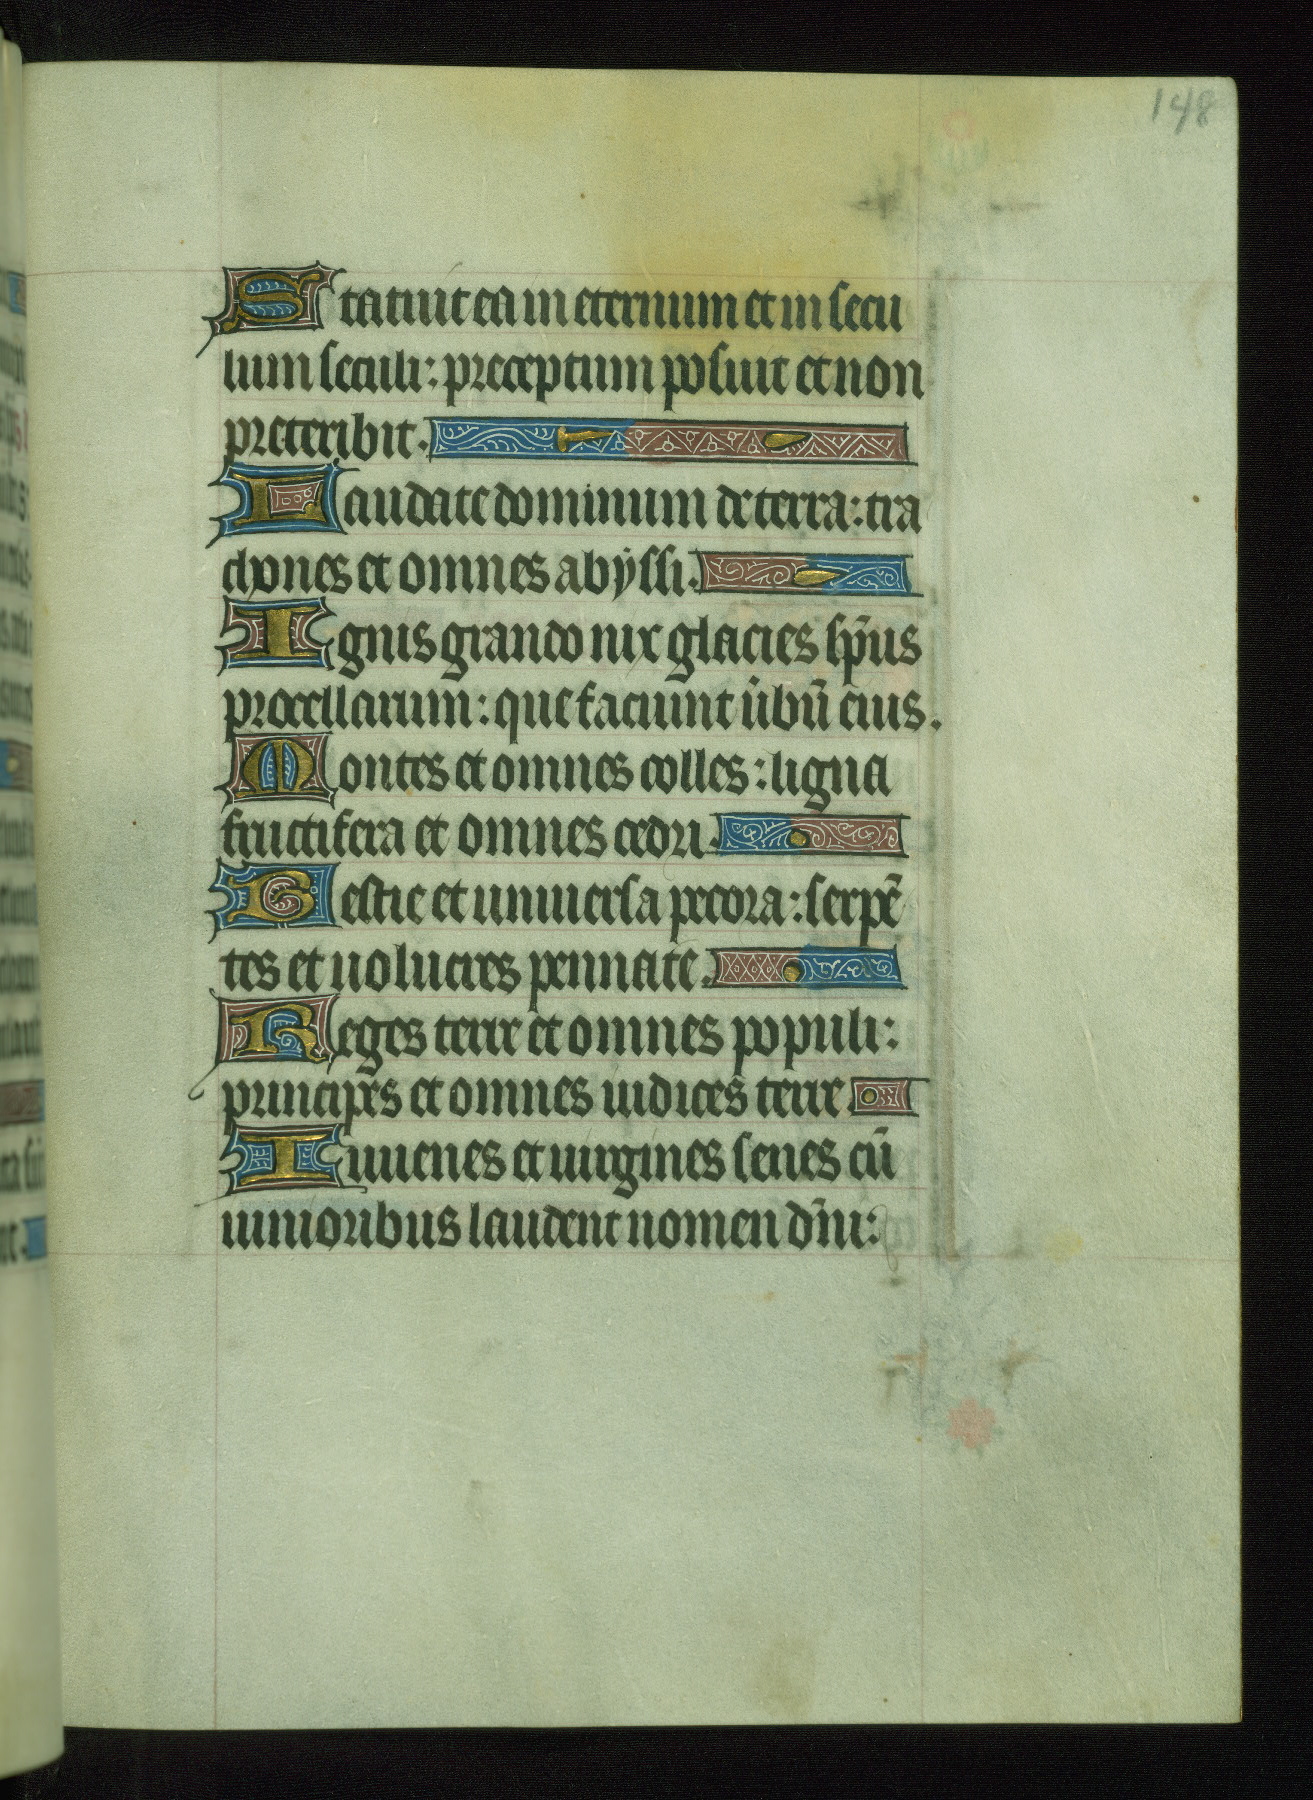 148
Statuit ea in eternum et in secu
lum seculi: preceptum posuit et non
preteribit.
Laudate dominum de terra: tra
chones et omnes abyssi.
Ignis grando nix glacies sp̄us
procellarum: que faciunt u̇bū eius.
Montes et omnes colles: ligna
fructifera et omnes cedri.
Bestie et uniuersa pecora: serpē
tes et uolucres pennate.
Reges terre et omnes populi:
principes et omnes iudices terre
Iuuenes et uirgines senes cū
iunioribus laudent nomen dn̄i: